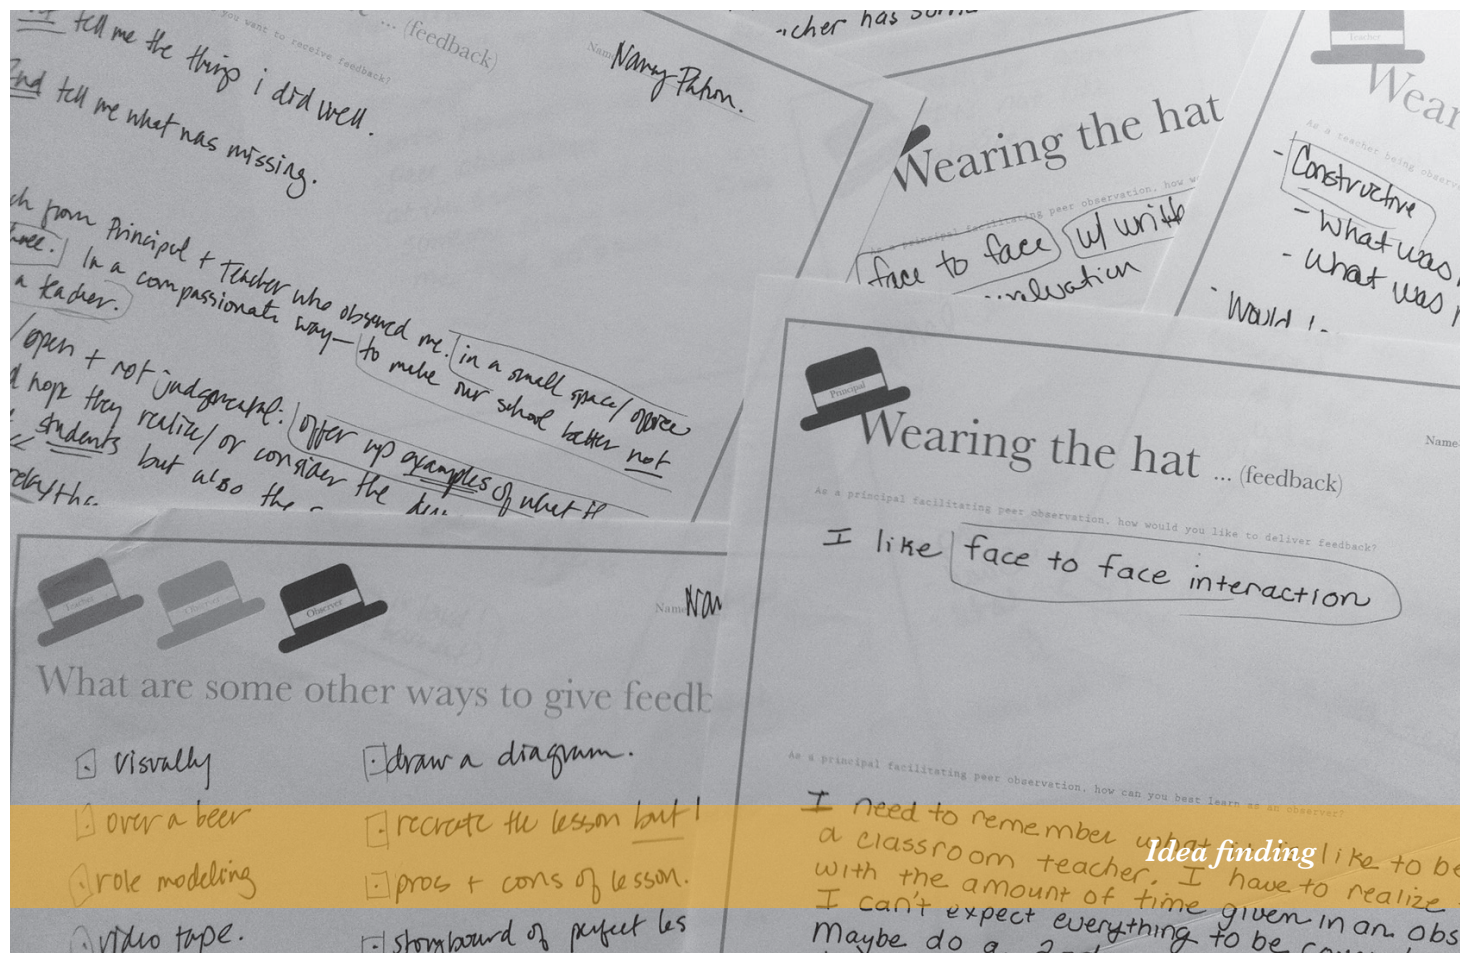 ... (feedback)
you want to receive feedback?
Name
1st tell me the things i did well.
2nd tell me what was missing.
from Principal + Teacher who observed me. in a small space/
In a compassionate way— to make our school better not
a teacher.
/open + not judgmental. offer up examples of what
hope they realize/ or consider the
students but also the
cher has
Wearing the hat
As a principal facilitating peer observation, how
face to face w/
Teacher
Wear
As a teacher being
- Constructive
- What was
- What was
Would
Principal
Wearing the hat ... (feedback)
Name
As a principal facilitating peer observation, how would you like to deliver feedback?
I like face to face interaction
As a principal facilitating peer observation, how can you best learn as an observer?
I need to remember what like to be
a classroom teacher. I have to realize
with the amount of time given in an obs
I can't expect everything to be
Maybe do a
Teacher
Observer
Name
What are some other ways to give feedb
visually
draw a diagram.
over a beer
recreate the lesson but
role modeling
pros + cons of lesson.
video tape.
storyboard of perfect les
Idea finding